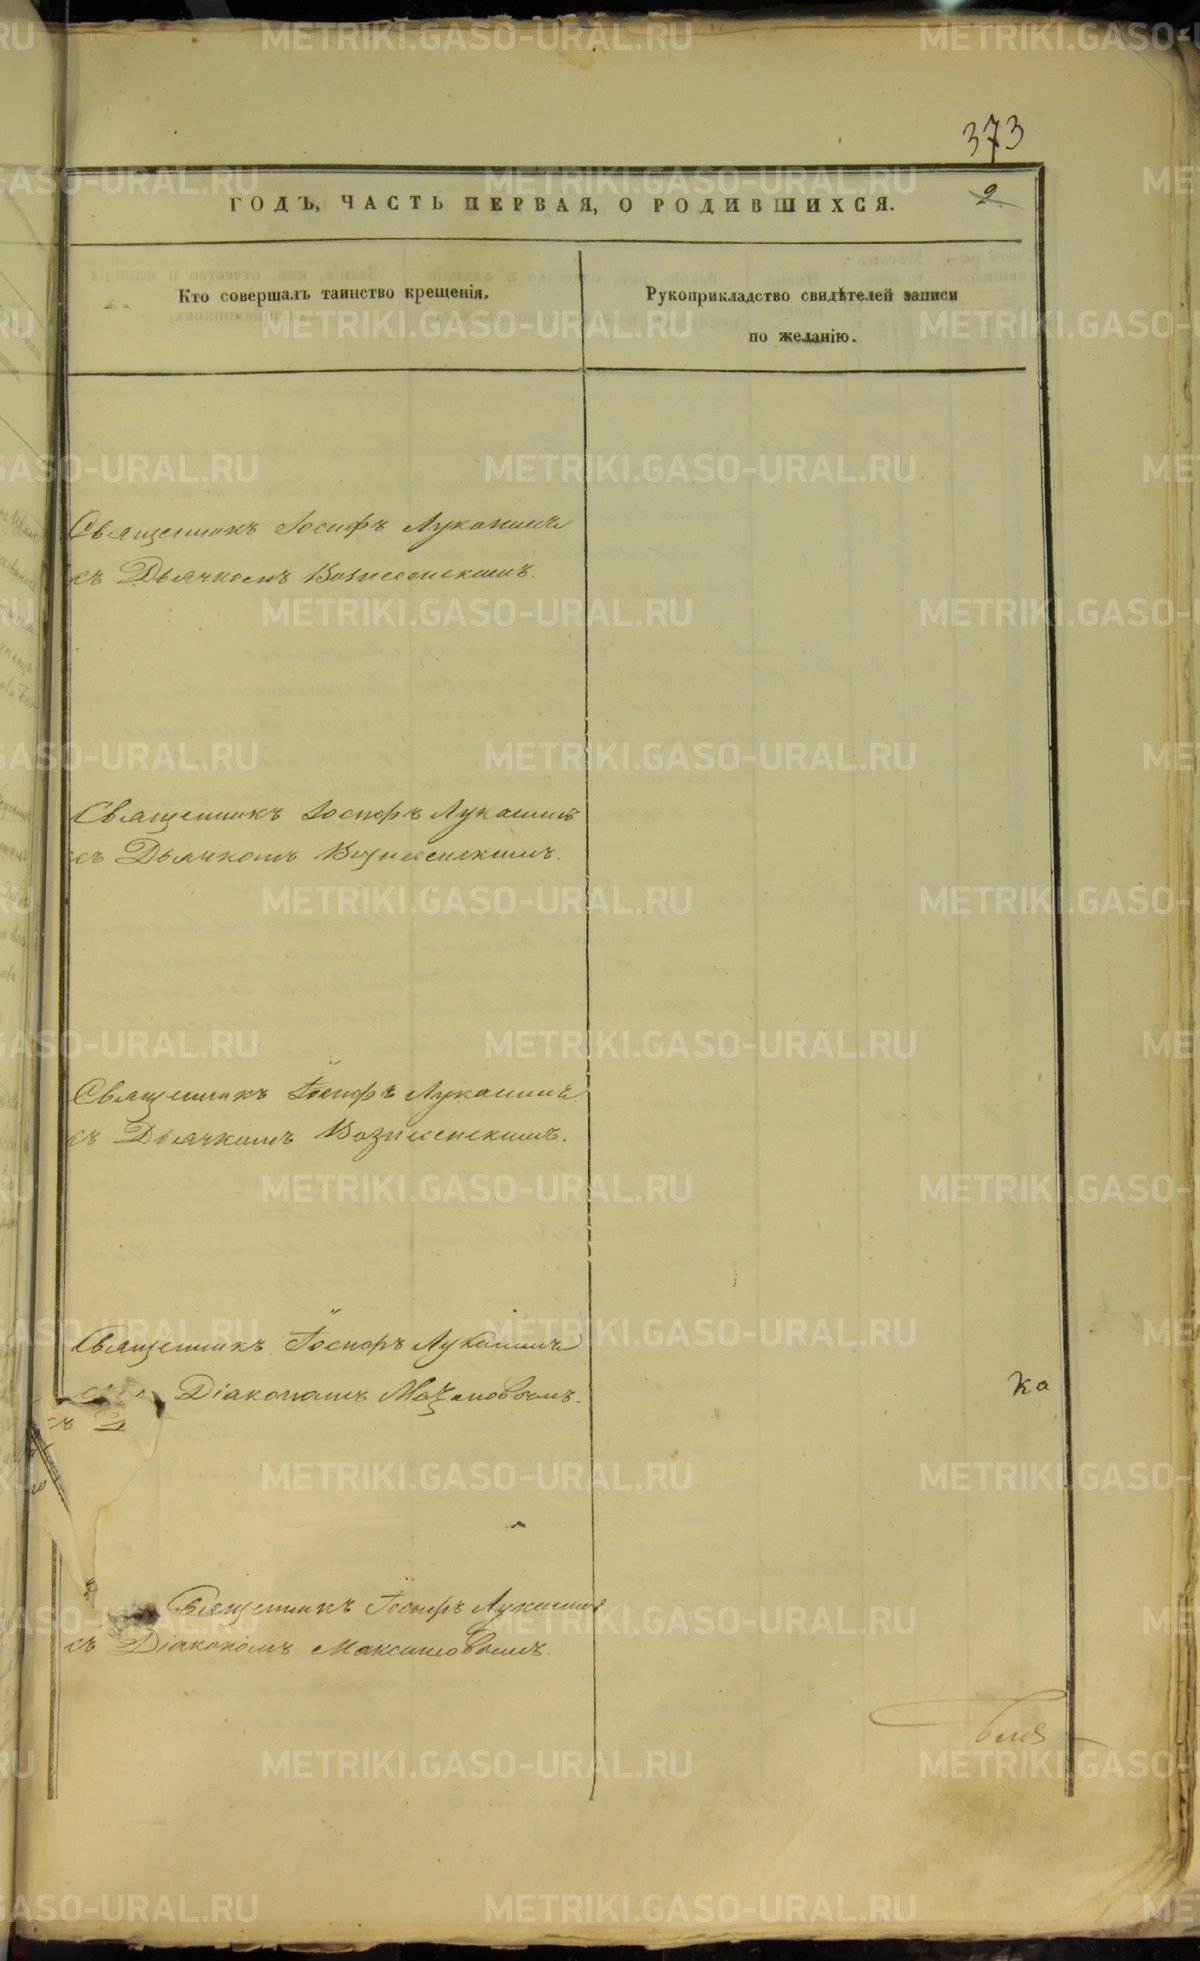 373
2
ГОДЪ, ЧАСТЬ ПЕРВАЯ, О РОДИВШИХСЯ.
Кто совершалъ таинство крещенія.
Рукоприкладство свидѣтелей записи
по желанію.
Священникъ Іосифъ Луканинъ
съ Дьячкомъ Вознесенскимъ.
Священникъ Іосифъ Луканинъ
съ Дьячкомъ Вознесенскимъ.
Священникъ Іосифъ Луканинъ
съ Дьячкомъ Вознесенскимъ.
Священникъ Іосифъ Луканинъ
Діакономъ
ка
съ
Священникъ Іосифъ Луканинъ
съ Діакономъ Максимовымъ.
METRIKI.GASO-URAL.RU